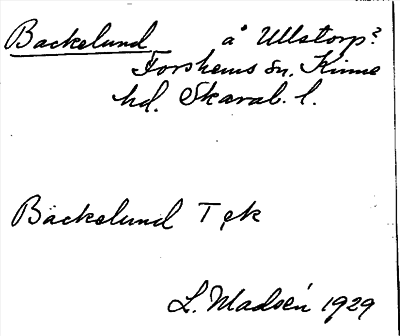 Backelund å Ullstorp?
Forshems sn. Kinne
hd. Skarab. l.
Backelund T ek
L. Madsén 1929